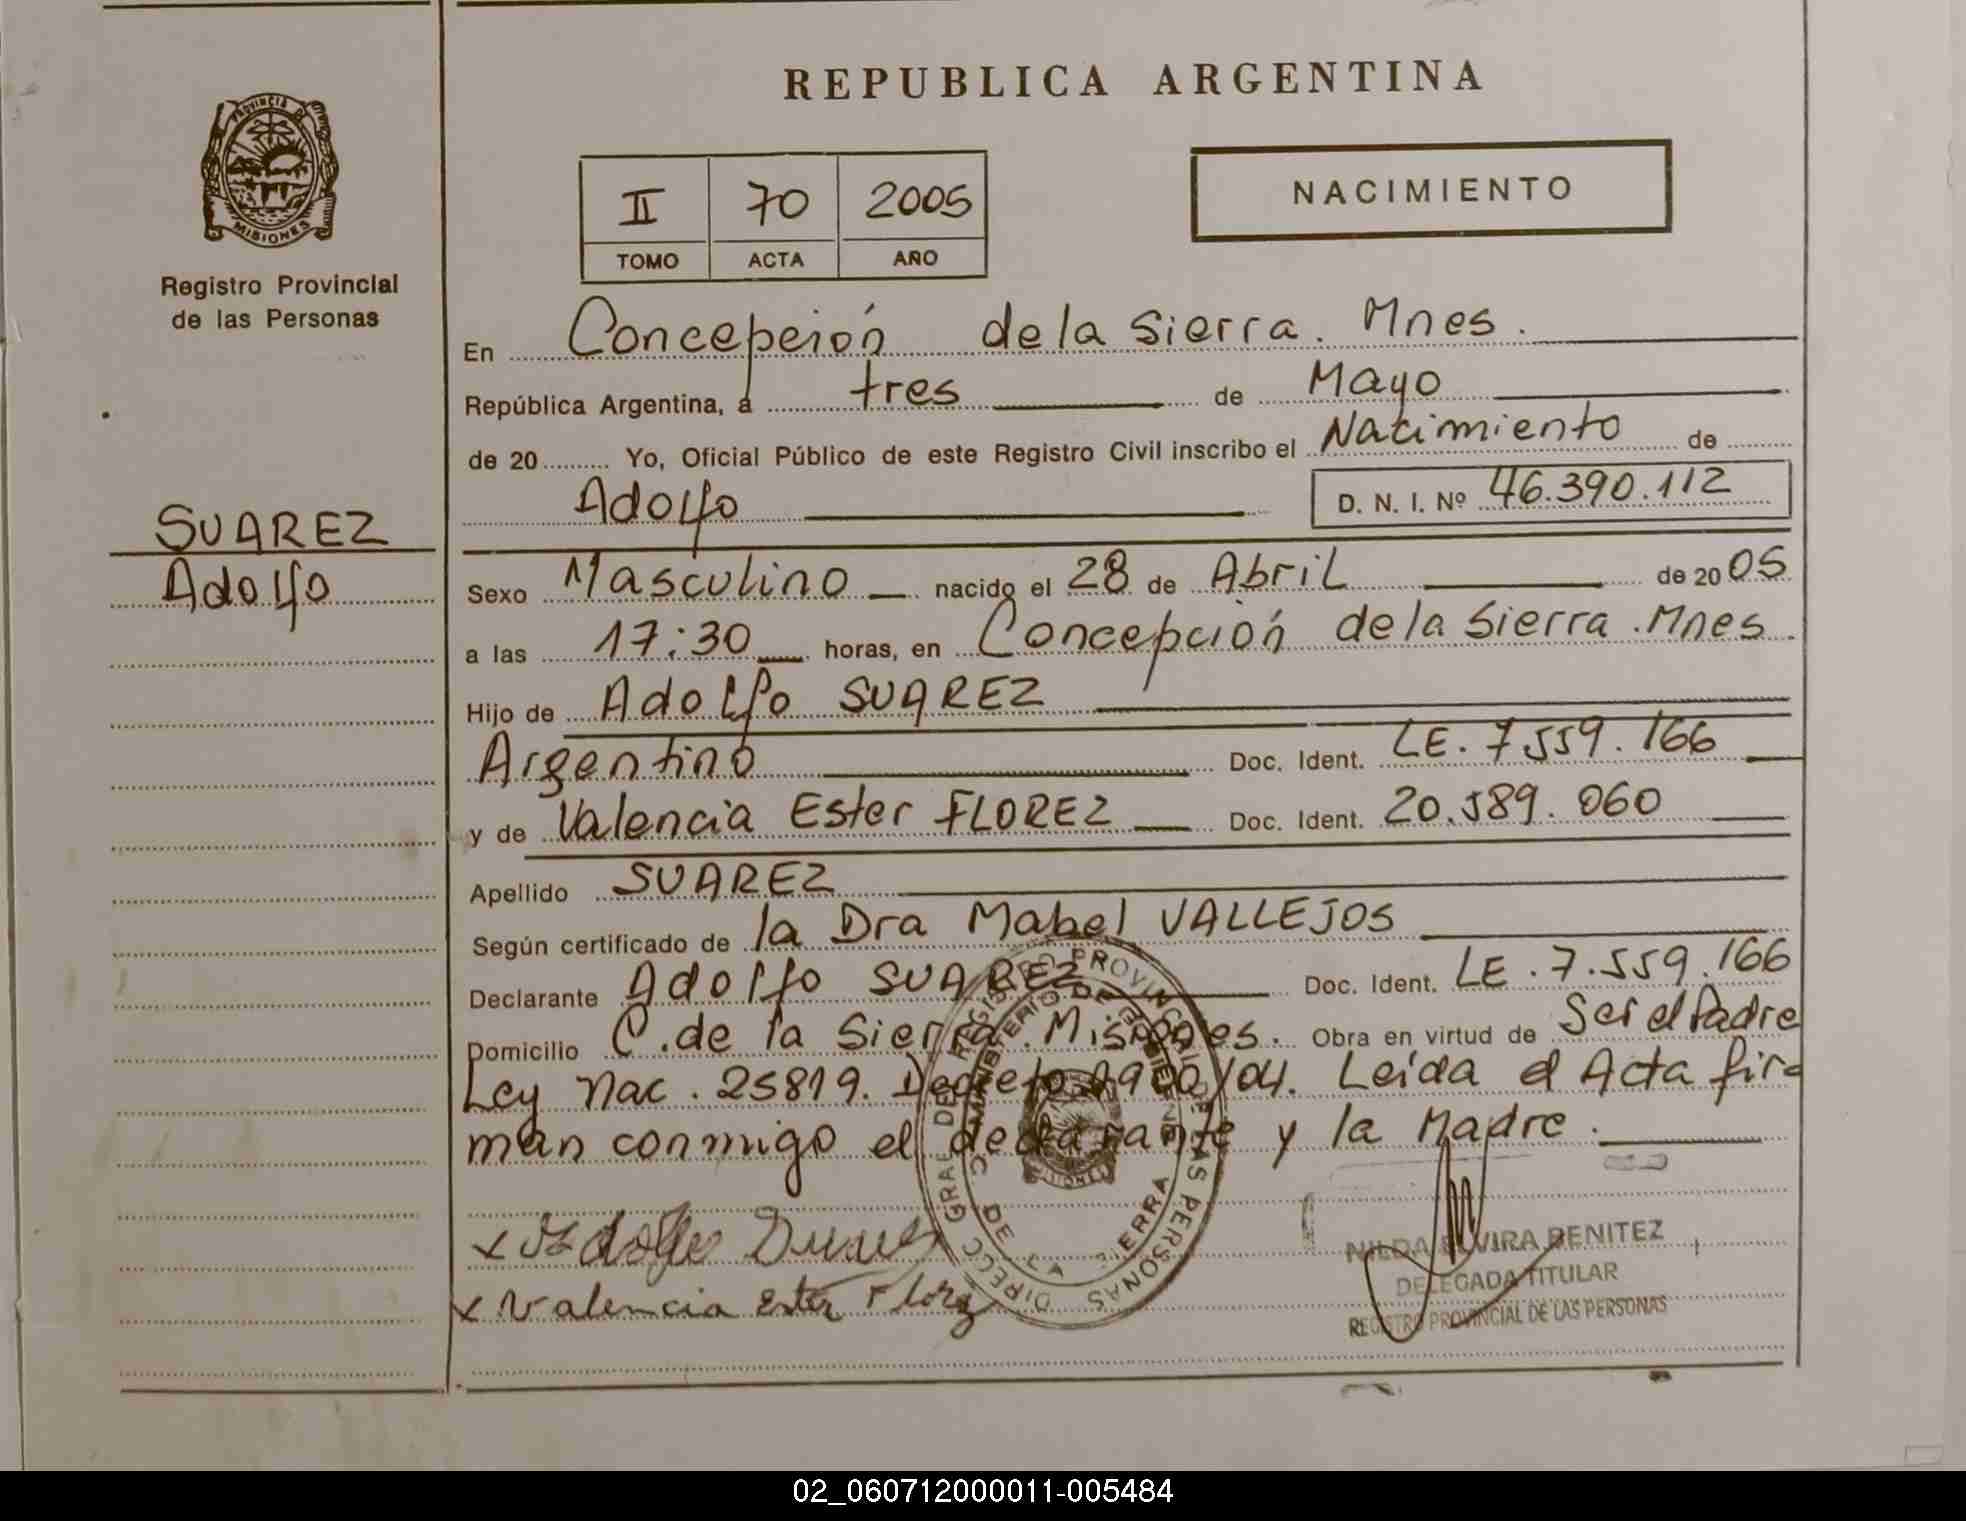 REPUBLICA ARGENTINA
PROVINCIA DE
MISIONES
Registro Provincial
de las Personas
SUAREZ
Adolfo
II 70 2005
TOMO ACTA AÑO
NACIMIENTO
En Concepción de la Sierra. Mnes.
República Argentina, a tres de Mayo
de 20 Yo, Oficial Público de este Registro Civil inscribo el Nacimiento de
Adolfo D. N. I. Nº 46.390.112
Sexo Masculino nacido el 28 de Abril de 2005
a las 17:30 horas, en Concepción de la Sierra. Mnes.
Hijo de Adolfo SUAREZ
Argentino Doc. Ident. LE. 7559.166
y de Valencia Ester FLOREZ Doc. Ident. 20.589.060
Apellido SUAREZ
Según certificado de la Dra Mabel VALLEJOS
Declarante Adolfo SUAREZ Doc. Ident. LE. 7.559.166
Domicilio C. de la Sierra. Misiones. Obra en virtud de Ser el Padre
Ley Nac. 25819. Decreto /04. Leída el Acta fir
man conmigo el declarante y la Madre.
x Adolfo
x Valencia Ester Florez
DIRECC GRAL DEL REGISTRO PROVINCIAL DE LAS PERSONAS
MINISTERIO DE GOBIERNO
C. DE LA SIERRA
NILDA ELVIRA BENITEZ
DELEGADA TITULAR
REGISTRO PROVINCIAL DE LAS PERSONAS
02_060712000011-005484